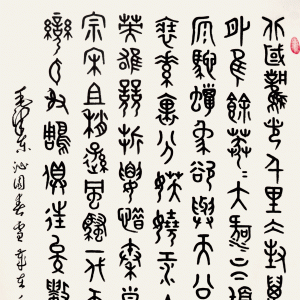 北國風光千里冰封萬
外惟餘莽〻大河上下頓
原馳蠟象欲與天公
裝素裹分外妖嬈
英雄競折腰惜秦皇
宗宋祖稍遜風騷一代天
彎弓射雕俱往矣數
毛澤東沁園春雪